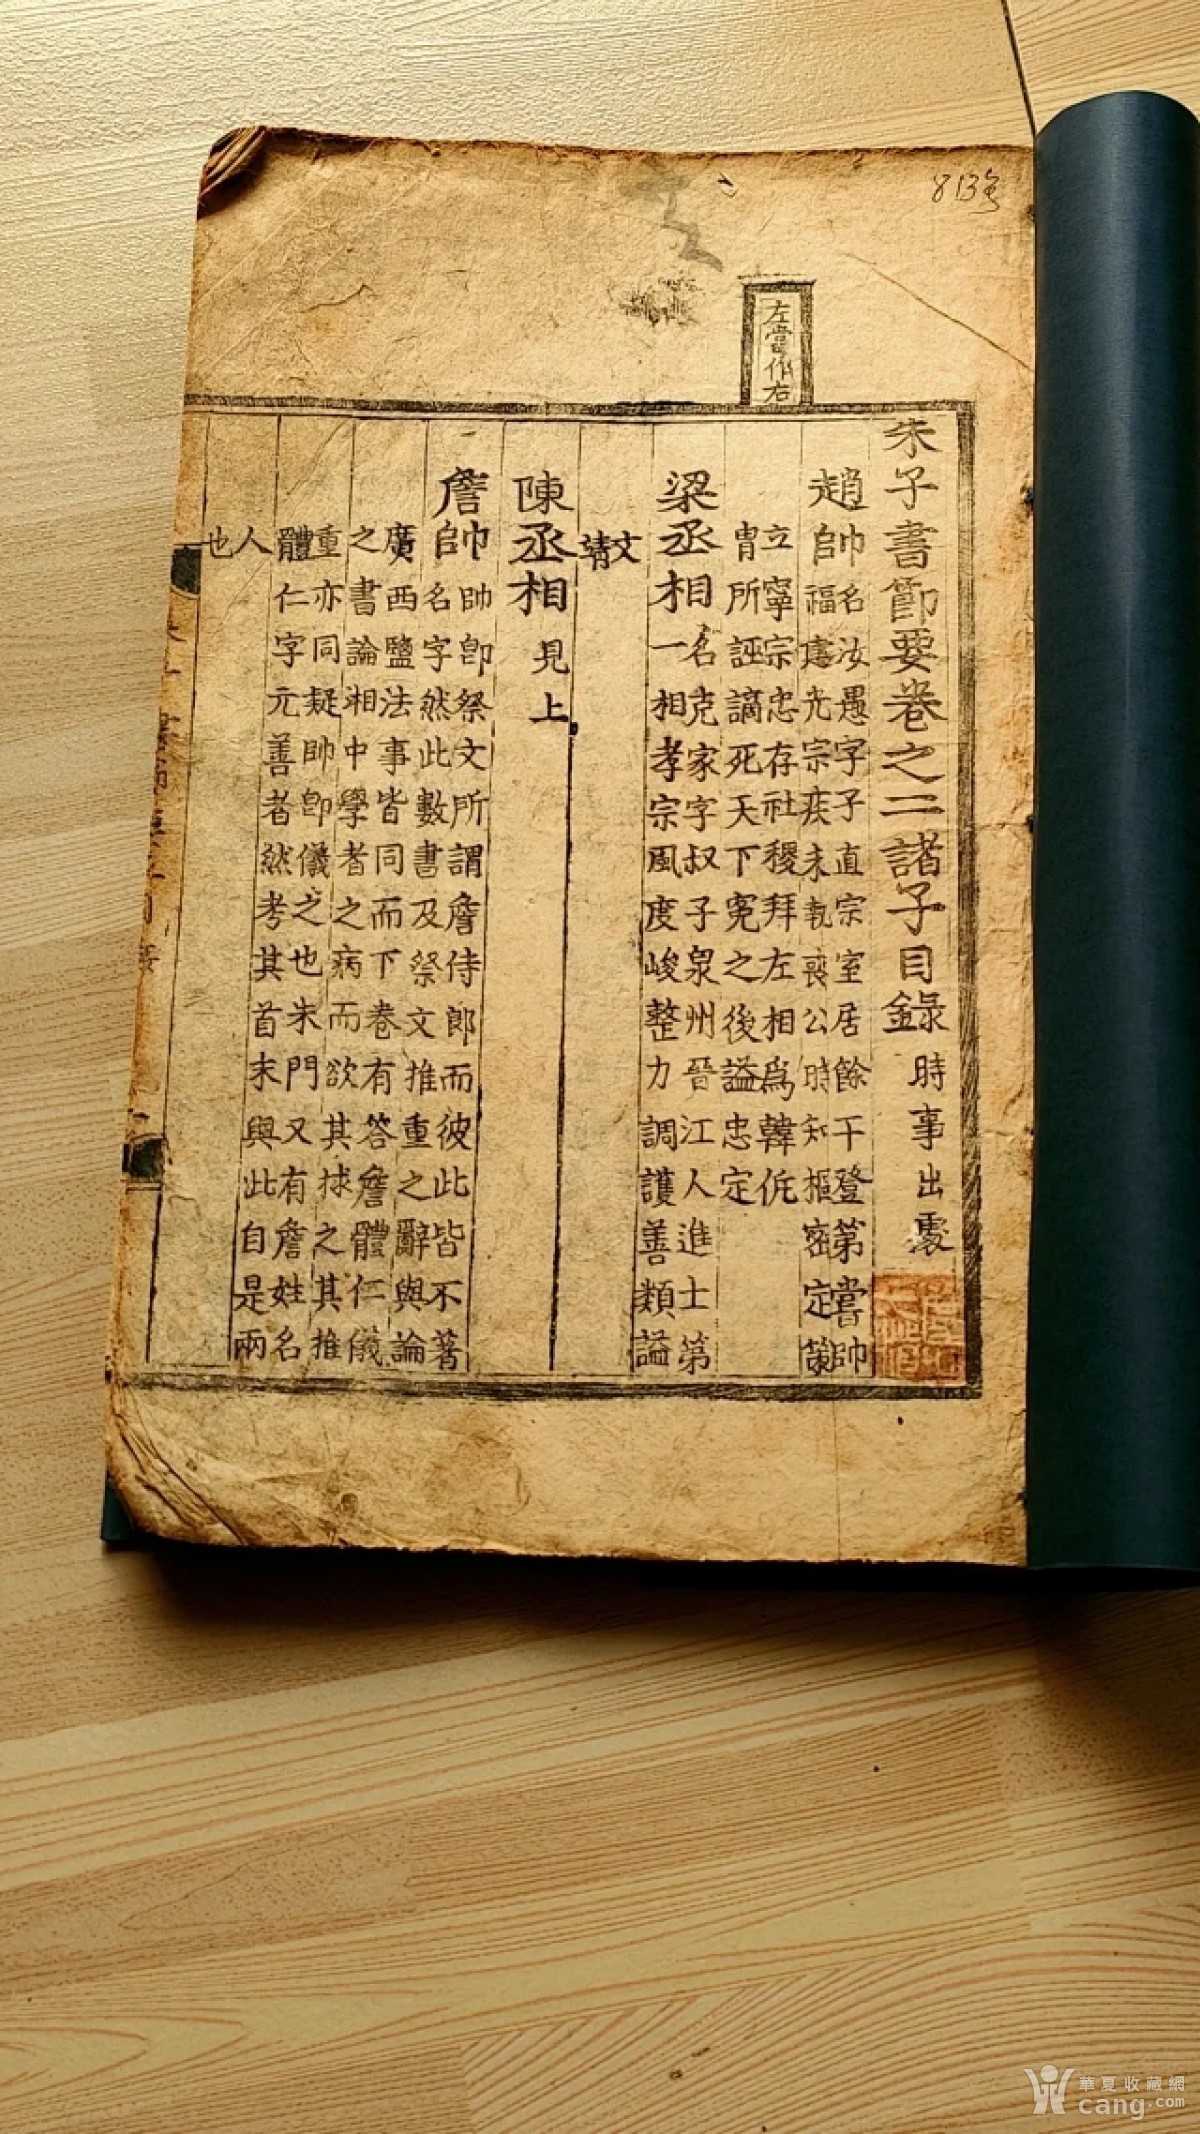 813
左當作右
朱子書節要卷之二諸子目錄 時事出處
趙帥 名汝愚字子直宗室居餘干登第嘗帥
福建光宗疾未執喪公時知樞密定策
立寧宗忠存社稷拜左相爲韓侂
冑所誣謫死天下寃之後謚忠定
梁丞相 名克家字叔子泉州晉江人進士第
一相孝宗風度峻整力調護善類謚
文
靖
陳丞相 見上
詹帥 帥卽祭文所謂詹侍郎而彼此皆不著
名字然此數書及祭文推重之辭與論
廣西鹽法事皆同而下卷有答詹體仁儀
之書論相中學者之病而欲其捄之其推
重亦同疑帥卽儀之也朱門又有詹姓名
體仁字元善者然考其首末與此自是兩
人
也
華夏收藏網
cang.com